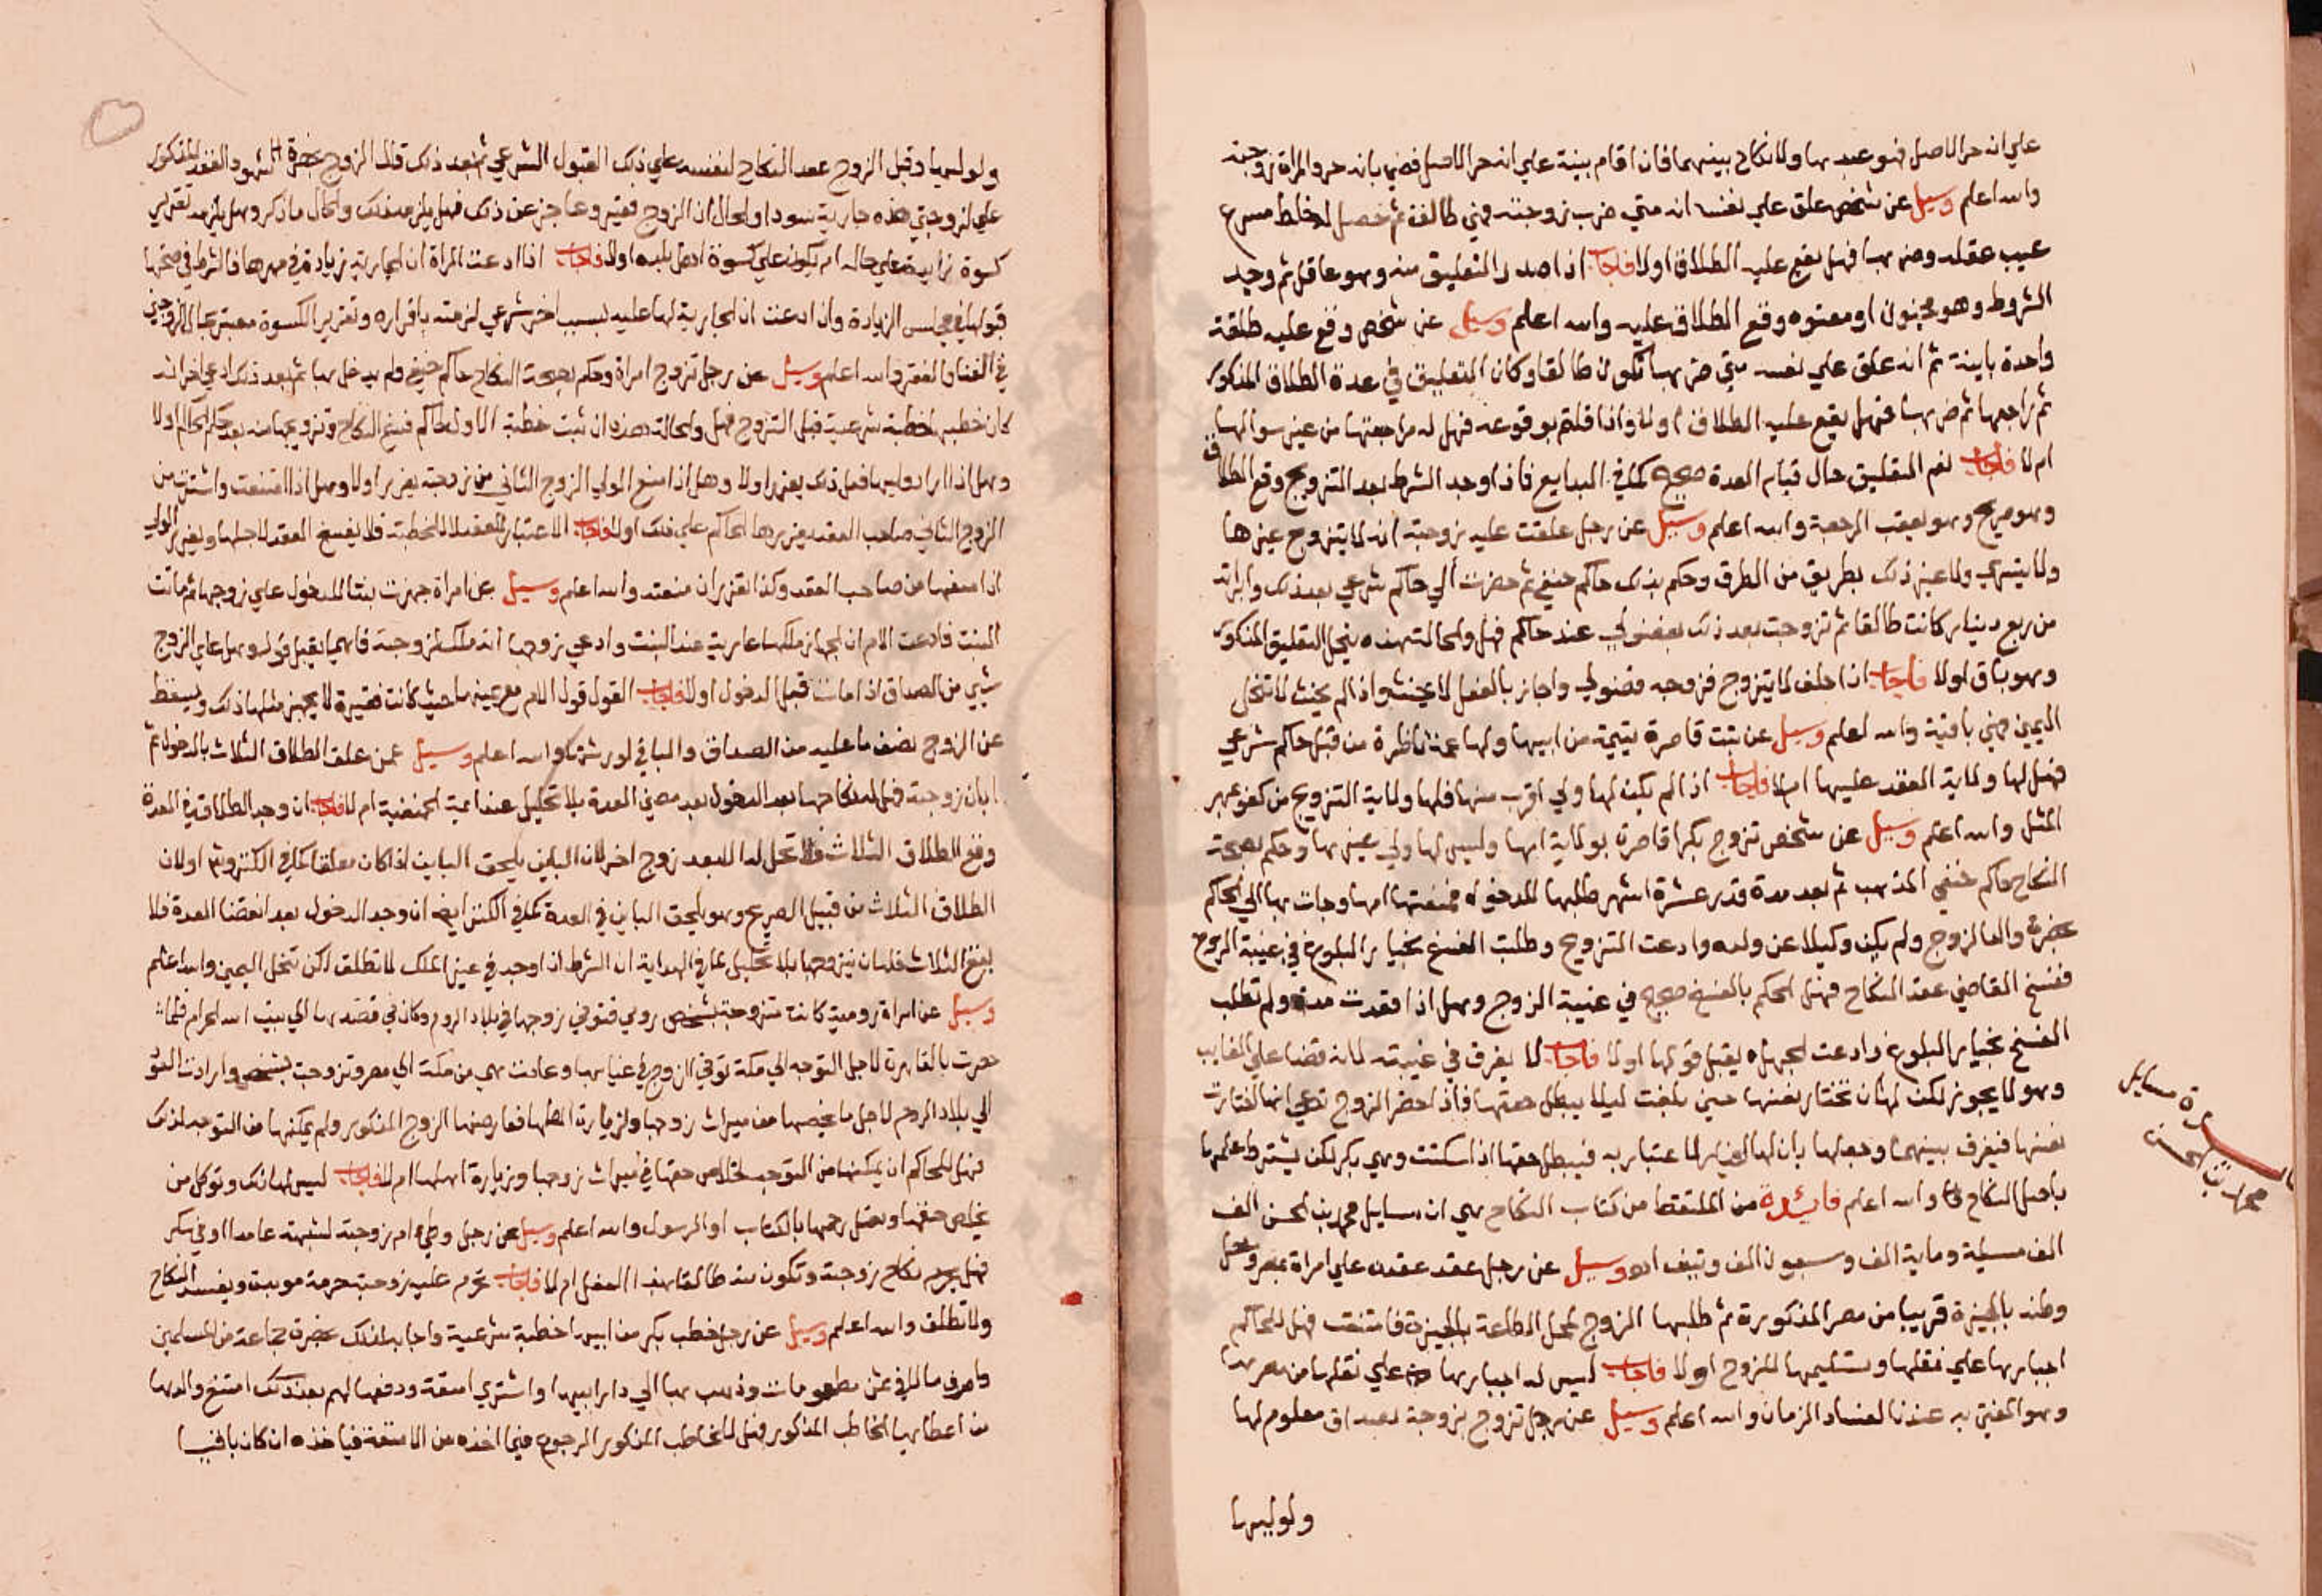 علي انه حر الاصل فهو عبد لها ولا نكاح بينهما فان اقام بينة علي انه حر الاصل قضي بانه حر والمراة زوجته
والله اعلم وسيل عن شخص علق علي نفسه انه متي ضرب زوجته فهي طالقة ثم حصل له خلط مسرع
غيب عقله وضربها فهل يقع عليه الطلاق اولا فاجاب اذا صدر التعليق منه وهو عاقل ثم وجد
الشروط وهو مجنون او معتوه وقع الطلاق عليه والله اعلم وسيل عن شخص وقع عليه طلقة
واحدة باينة ثم انه علق علي نفسه متي ضربها تكون طالقا وكان التعليق في عدة الطلاق المذكور
ثم راجعها ثم ضربها فهل يقع عليه الطلاق اولا واذا قلتم بوقوعه فهل له مراجعتها من غير سوالها
ام لا فاجاب نعم التعليق حال قيام العدة صحيح كما في البدايع فاذا وجد الشرط بعد التزويج وقع الطلاق
وهو صريح وهو يعقب الرجعة والله اعلم وسيل عن رجل علقت عليه زوجته انه لا يتزوج غيرها
ولا يتسري ولا غير ذلك بطريق من الطرق وحكم بذلك حاكم حنفي ثم حضرت الي حاكم شرعي بعد ذلك وابراته
من ربع دينار كانت طالقا ثم تزوجت بعد ذلك بفضولي عند حاكم فهل والحالة هذه ينحل التعليق المذكور
وهو باق اولا فاجاب اذا حلف لا يتزوج فزوجه فضولي واجاز بالفعل لا يحنث واذا لم يحنث لا تنحل
اليمين فهي باقية والله اعلم وسيل عن بنت قاصرة يتيمة من ابيها ولها عمة ناظرة من قبل حاكم شرعي
فهل لها ولاية العقد عليها ام لا فاجاب اذا لم يكن لها ولي اقرب منها فلها ولاية التزويج من كفو بمهر
المثل والله اعلم وسيل عن شخص تزوج بكرا قاصرة بولاية امها وليس لها ولي غيرها وحكم بصحة
النكاح حاكم حنفي المذهب ثم بعد مدة قدر عشرة اشهر طلبها للدخول فمنعتها امها وجات بها الي الحاكم
بحضرة والد الزوج ولم يكن وكيلا عن ولده وادعت التزويج وطلبت الفسخ بخيار البلوغ في غيبة الزوج
ففسخ القاضي عقد النكاح فهل الحكم بالفسخ صحيح في غيبة الزوج وهل اذا قعدت مدة ولم تطلب
الفسخ بخيار البلوغ وادعت الجهل يقبل قولها اولا فاجاب لا يفرق في غيبته لانه قضا علي الغايب
وهو لا يجوز لكن لها ان تختار نفسها حين بلغت ليلا يبطل حقها فاذا حضر الزوج تدعي انها اختارت
نفسها فيفرق بينهما وجهلها بان لها الخيار لا اعتبار به فيبطل حقها اذا سكتت وهي بكر لكن يشترط علمها
باصل النكاح والله اعلم فايدة من الملتقط من كتاب النكاح هي ان مسايل محمد بن الحسن الف
الف مسيلة وماية الف وسبعون الف ونيف اه وسيل عن رجل عقد عقده علي امراة بمصر ومحل
وطنه بالجيزة قريبا من مصر المذكورة ثم طلبها الزوج لمحل الطاعة بالجيزة فامتنعت فهل للحاكم
اجبارها علي نقلها وتسليمها للزوج اولا فاجاب ليس له اجبارها علي نقلها من مصرها
وهو المفتي به عندنا لفساد الزمان والله اعلم وسيل عن رجل تزوج بزوجة بصداق معلوم لها
ولوليها
مسايل
محمد بن الحسن
ولوليها وقبل الزوج عقد النكاح لنفسه علي ذلك القبول الشرعي ثم بعد ذلك قال الزوج بحضرة الشهود العقد المذكور
علي لزوجتي هذه جارية سودا والحال ان الزوج فقير وعاجز عن ذلك فهل يلزمه ذلك والحال ما ذكر وهل يلزمه تقرير
كسوة زايدة علي حاله ام يكون علي كسوة اهل بلده اولا فاجاب اذا ادعت المراة ان الجارية زيادة في مهرها فالشرط في صحتها
قبولها في مجلس الزيادة وان ادعت ان الجارية لها عليه بسبب اخر شرعي لزمته باقراره وتقرير الكسوة معتبر بحال الزوجين
في الغنا والفقر والله اعلم وسيل عن رجل تزوج امراة وحكم بصحة النكاح حاكم حنفي ولم يدخل بها ثم بعد ذلك ادعي اخر انه
كان خطبها خطبة شرعية قبل التزوج فهل والحالة هذه ان ثبت خطبة الاول لحاكم فسخ النكاح وتزويجها منه بعد حكم الحاكم اولا
وهل اذا اراد وليها فعل ذلك يعزر اولا وهل اذا منع الولي الزوج الثاني من زوجته يعزر اولا وهل اذا امتنعت واشتزت من
الزوج الثاني صاحب العقد يعزرها الحاكم علي ذلك اولا فاجاب الاعتبار للعقد لا للخطبة فلا يفسخ العقد لاجلها ويعزر الولي
اذا منعها من صاحب العقد وكذا تعزر ان منعته والله اعلم وسيل عن امراة جهزت بنتا للدخول علي زوجها ثم ماتت
البنت فادعت الام ان الجهاز ملكها عارية عند البنت وادعي زوجها انه ملك لزوجته فايهما يقبل قوله وهل علي الزوج
شيي من الصداق اذا ماتت قبل الدخول اولا فاجاب القول قول الام مع يمينها حيث كانت فقيرة لا يجهز مثلها ذلك ويسقط
عن الزوج نصف ما عليه من الصداق والباقي لورثتها والله اعلم وسيل عمن علق الطلاق الثلاث بالدخول ثم
ابان زوجته فهل له نكاحها بعد الدخول بعد مضي العدة بلا تحليل عند ايمة الحنفية ام لا فاجاب ان وجد الطلاق في العدة
وقع الطلاق الثلاث فلا تحل له الا بعد زوج اخر لان الباين يلحق الباين اذا كان معلقا كما في الكنز وشرحه اولان
الطلاق الثلاث من قبيل الصريح وهو يلحق الباين في العدة كما في الكنز ايضا وان وجد الدخول بعد انقضا العدة فلا
يقع الثلاث فله ان يتزوجها بلا تحليل لما في الهداية ان الشرط اذا وجد في غير الملك لا تطلق لكن تنحل اليمين والله اعلم
وسيل عن امراة رومية كانت متزوجة بشخص رومي فتوفي زوجها في بلاد الروم وكان في قصدها الي بيت الله الحرام فلما
حضرت بالقاهرة لاجل التوجه الي مكة توفي الزوج في غيابها وعادت هي من مكة الي مصر وتزوجت بشخص وارادت العود
الي بلاد الروم لاجل ما يخصها من ميراث زوجها ولزيارة اهلها فعارضها الزوج المذكور ولم يمكنها من التوجه لذلك
فهل للحاكم ان يمكنها من التوجه لخلاص حقها في ميراث زوجها وزيارة اهلها ام لا فاجاب ليس لها ذلك وتوكل من
يخلص حقها وتصل رحمها بالكتاب او الرسول والله اعلم وسيل عن رجل وطي ام زوجته لشبهة عامدا او في سكر
فهل يحرم نكاح زوجته وتكون منه طالقا بهذا الفعل ام لا فاجاب تحرم عليه زوجته حرمة موبدة ويفسد النكاح
ولا تطلق والله اعلم وسيل عن رجل خطب بكر من ابيها خطبة شرعية واجابه لذلك بحضرة جماعة من المسلمين
واصرف مالا في ثمن مطعومات وذهب بها الي دار ابيها واشتري امتعة ودفعها لهم بعد ذلك امتنع والدها
من اعطايها لخاطب المذكور فهل للخاطب المذكور الرجوع فيما اخذه من الامتعة فياخذه ان كان باقيا